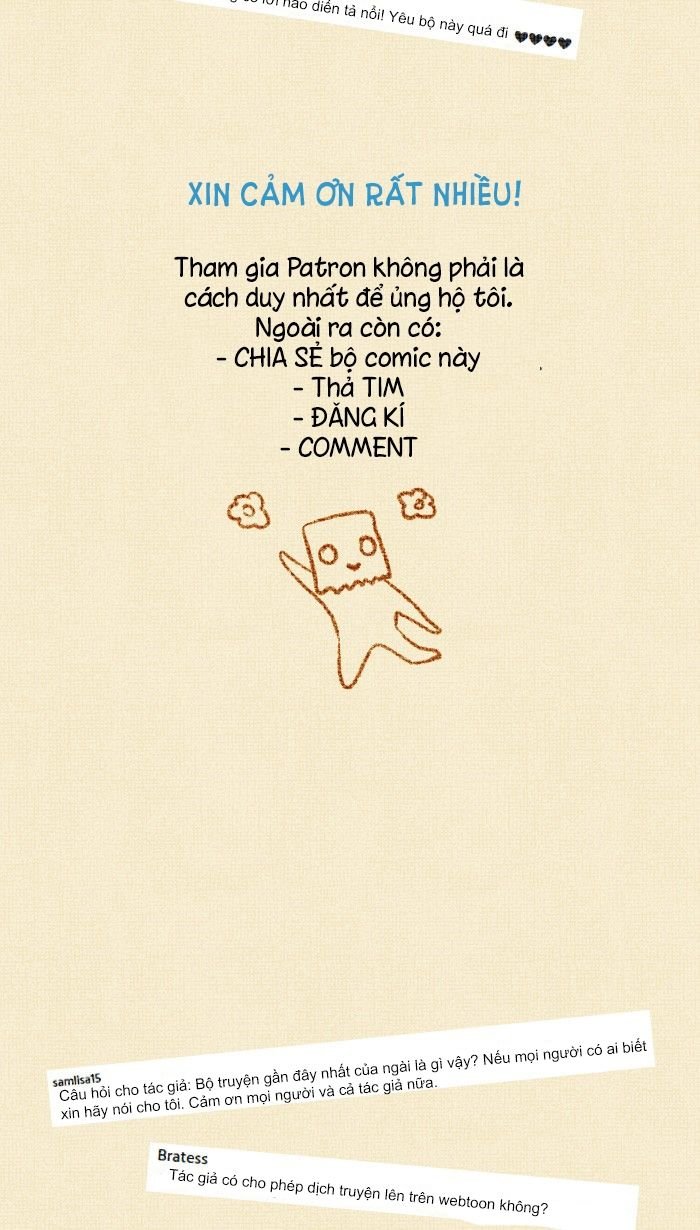 lời nào diễn tả nổi! Yêu bộ này quá đi
XIN CẢM ƠN RẤT NHIỀU!
Tham gia Patron không phải là
cách duy nhất để ủng hộ tôi.
Ngoài ra còn có:
- CHIA SẺ bộ comic này
- Thả TIM
- ĐĂNG KÍ
- COMMENT
samlisa15
Câu hỏi cho tác giả: Bộ truyện gần đây nhất của ngài là gì vậy? Nếu mọi người có ai biết
xin hãy nói cho tôi. Cảm ơn mọi người và cả tác giả nữa.
Bratess
Tác giả có cho phép dịch truyện lên trên webtoon không?